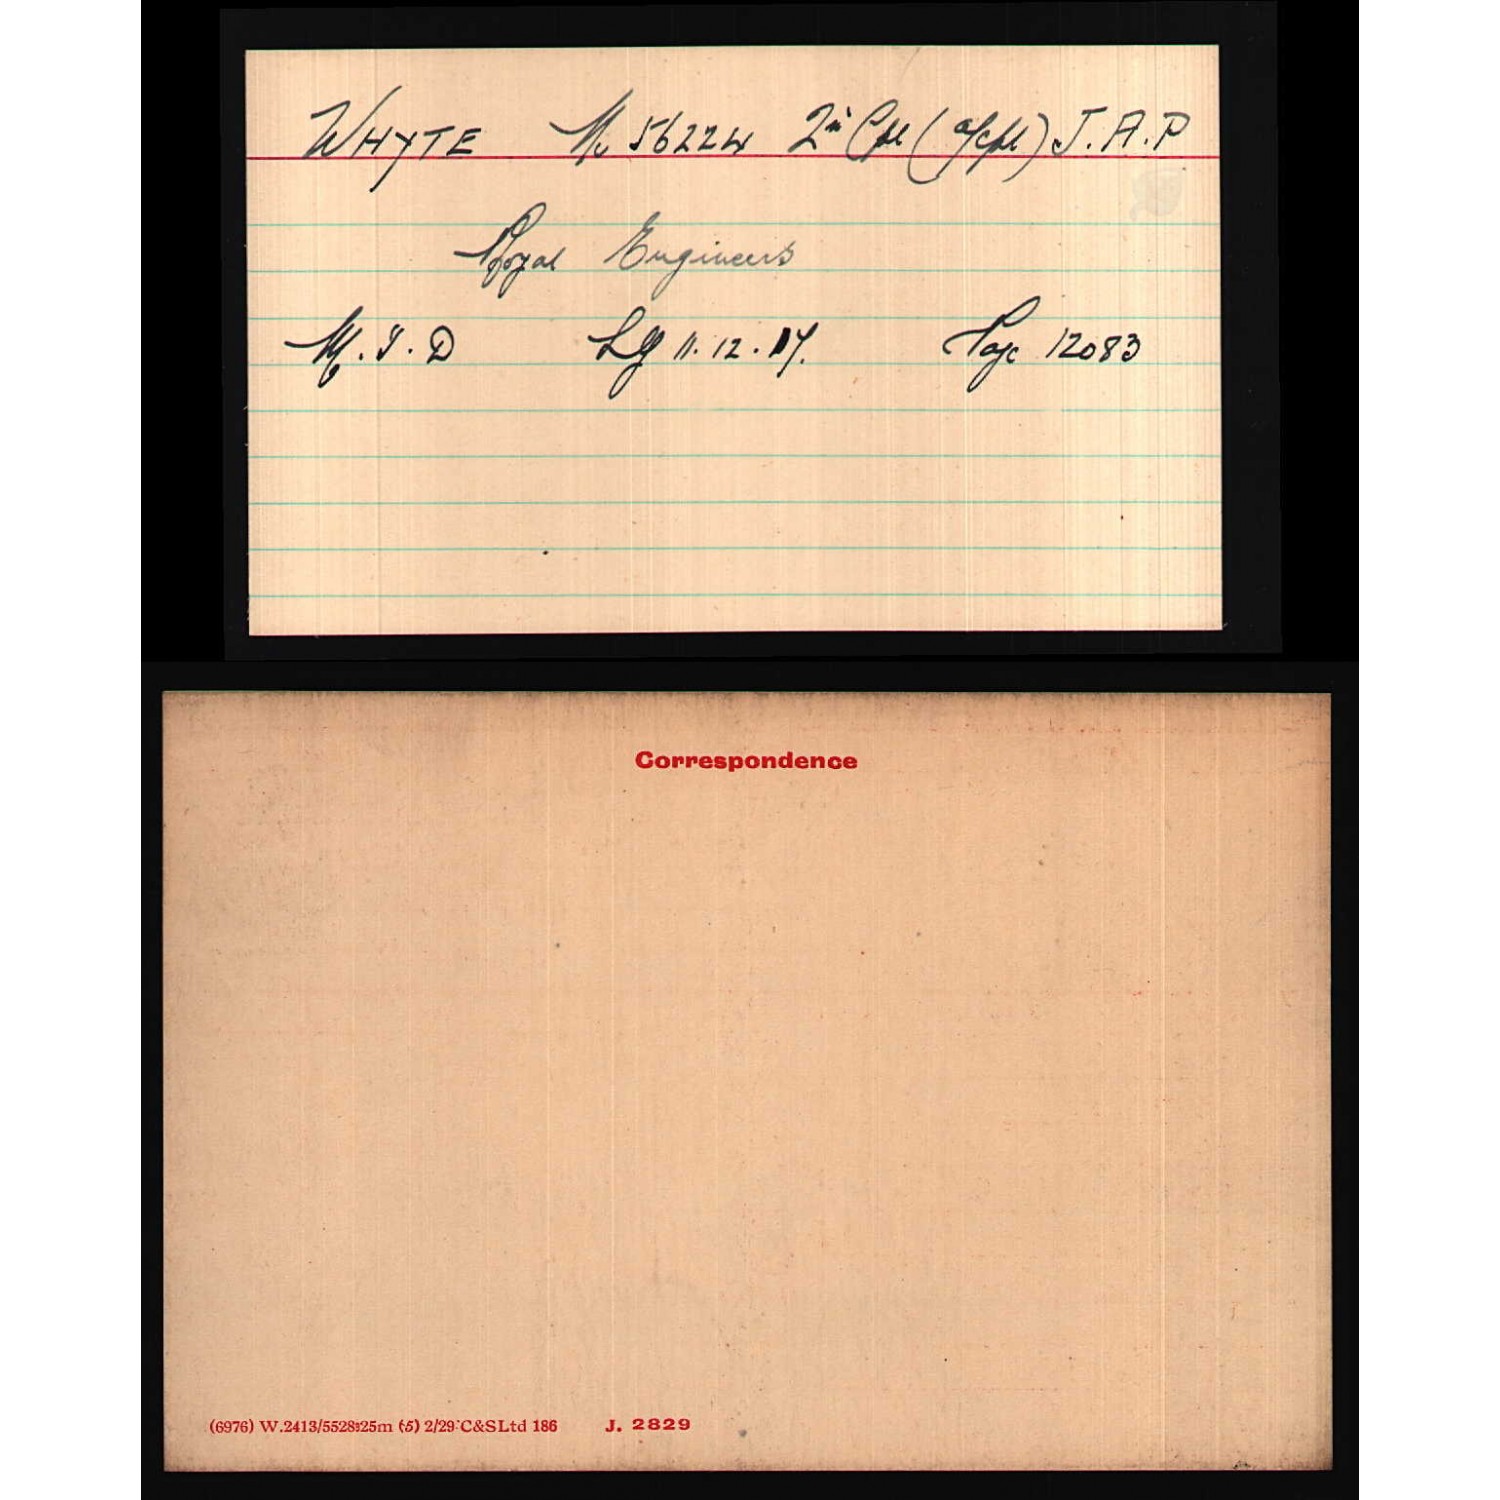 WHYTE No 56224 2nd Cpl (a/Cpl) J.A.P
Royal Engineers
M.I.D LG 11.12.17. Page 12083
Correspondence
(6976) W.2413/5528 25m (5) 2/29 C&S Ltd 186 J. 2829